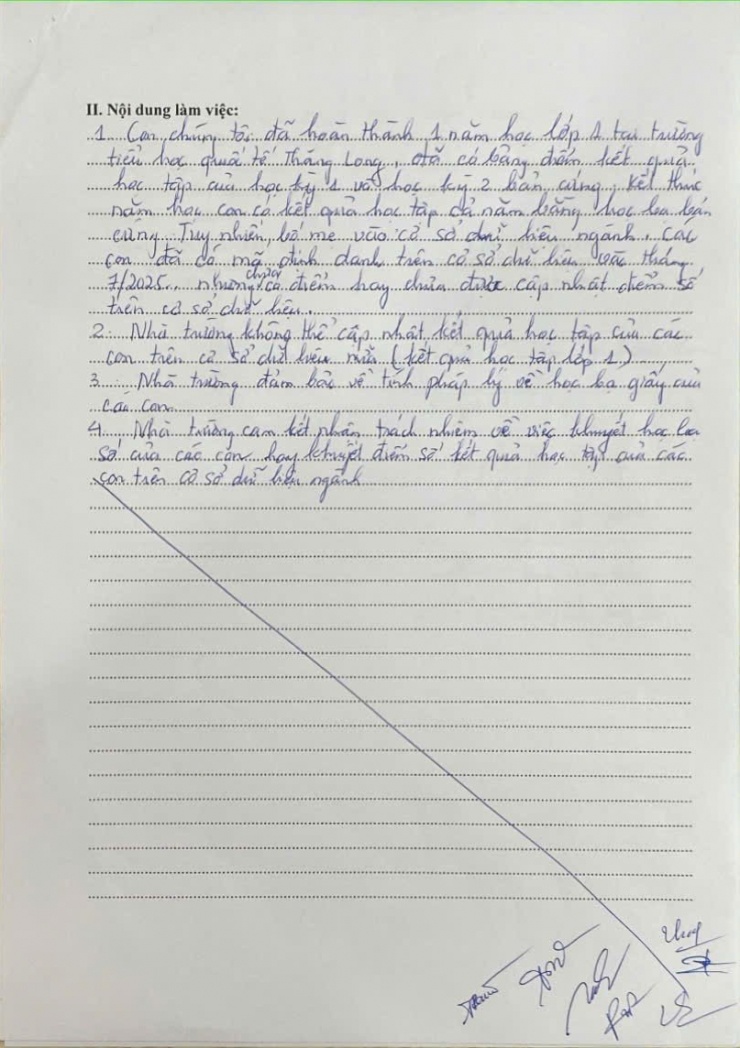 II. Nội dung làm việc:
1. Con chúng tôi đã hoàn thành 1 năm học lớp 1 tại trường
tiểu học quốc tế Thăng Long, đã có bảng điểm kết quả
học tập của học kỳ 1 và học kỳ 2 bản cứng, kết thúc
năm học con có kết quả học tập cả năm bằng học bạ bản
cứng. Tuy nhiên, bố mẹ vào cơ sở dữ liệu ngành, các
con đã có mã định danh trên cơ sở dữ liệu vào tháng
7/2025 nhưng chưa có điểm hay chưa được cập nhật điểm số
trên cơ sở dữ liệu.
2. Nhà trường không thể cập nhật kết quả học tập của các
con trên cơ sở dữ liệu nữa (kết quả học tập lớp 1)
3. Nhà trường đảm bảo về tính pháp lý về học bạ giấy của
các con.
4. Nhà trường cam kết nhận trách nhiệm về việc khuyết học bạ
số của các con hay khuyết điểm số kết quả học tập của các
con trên cơ sở dữ liệu ngành